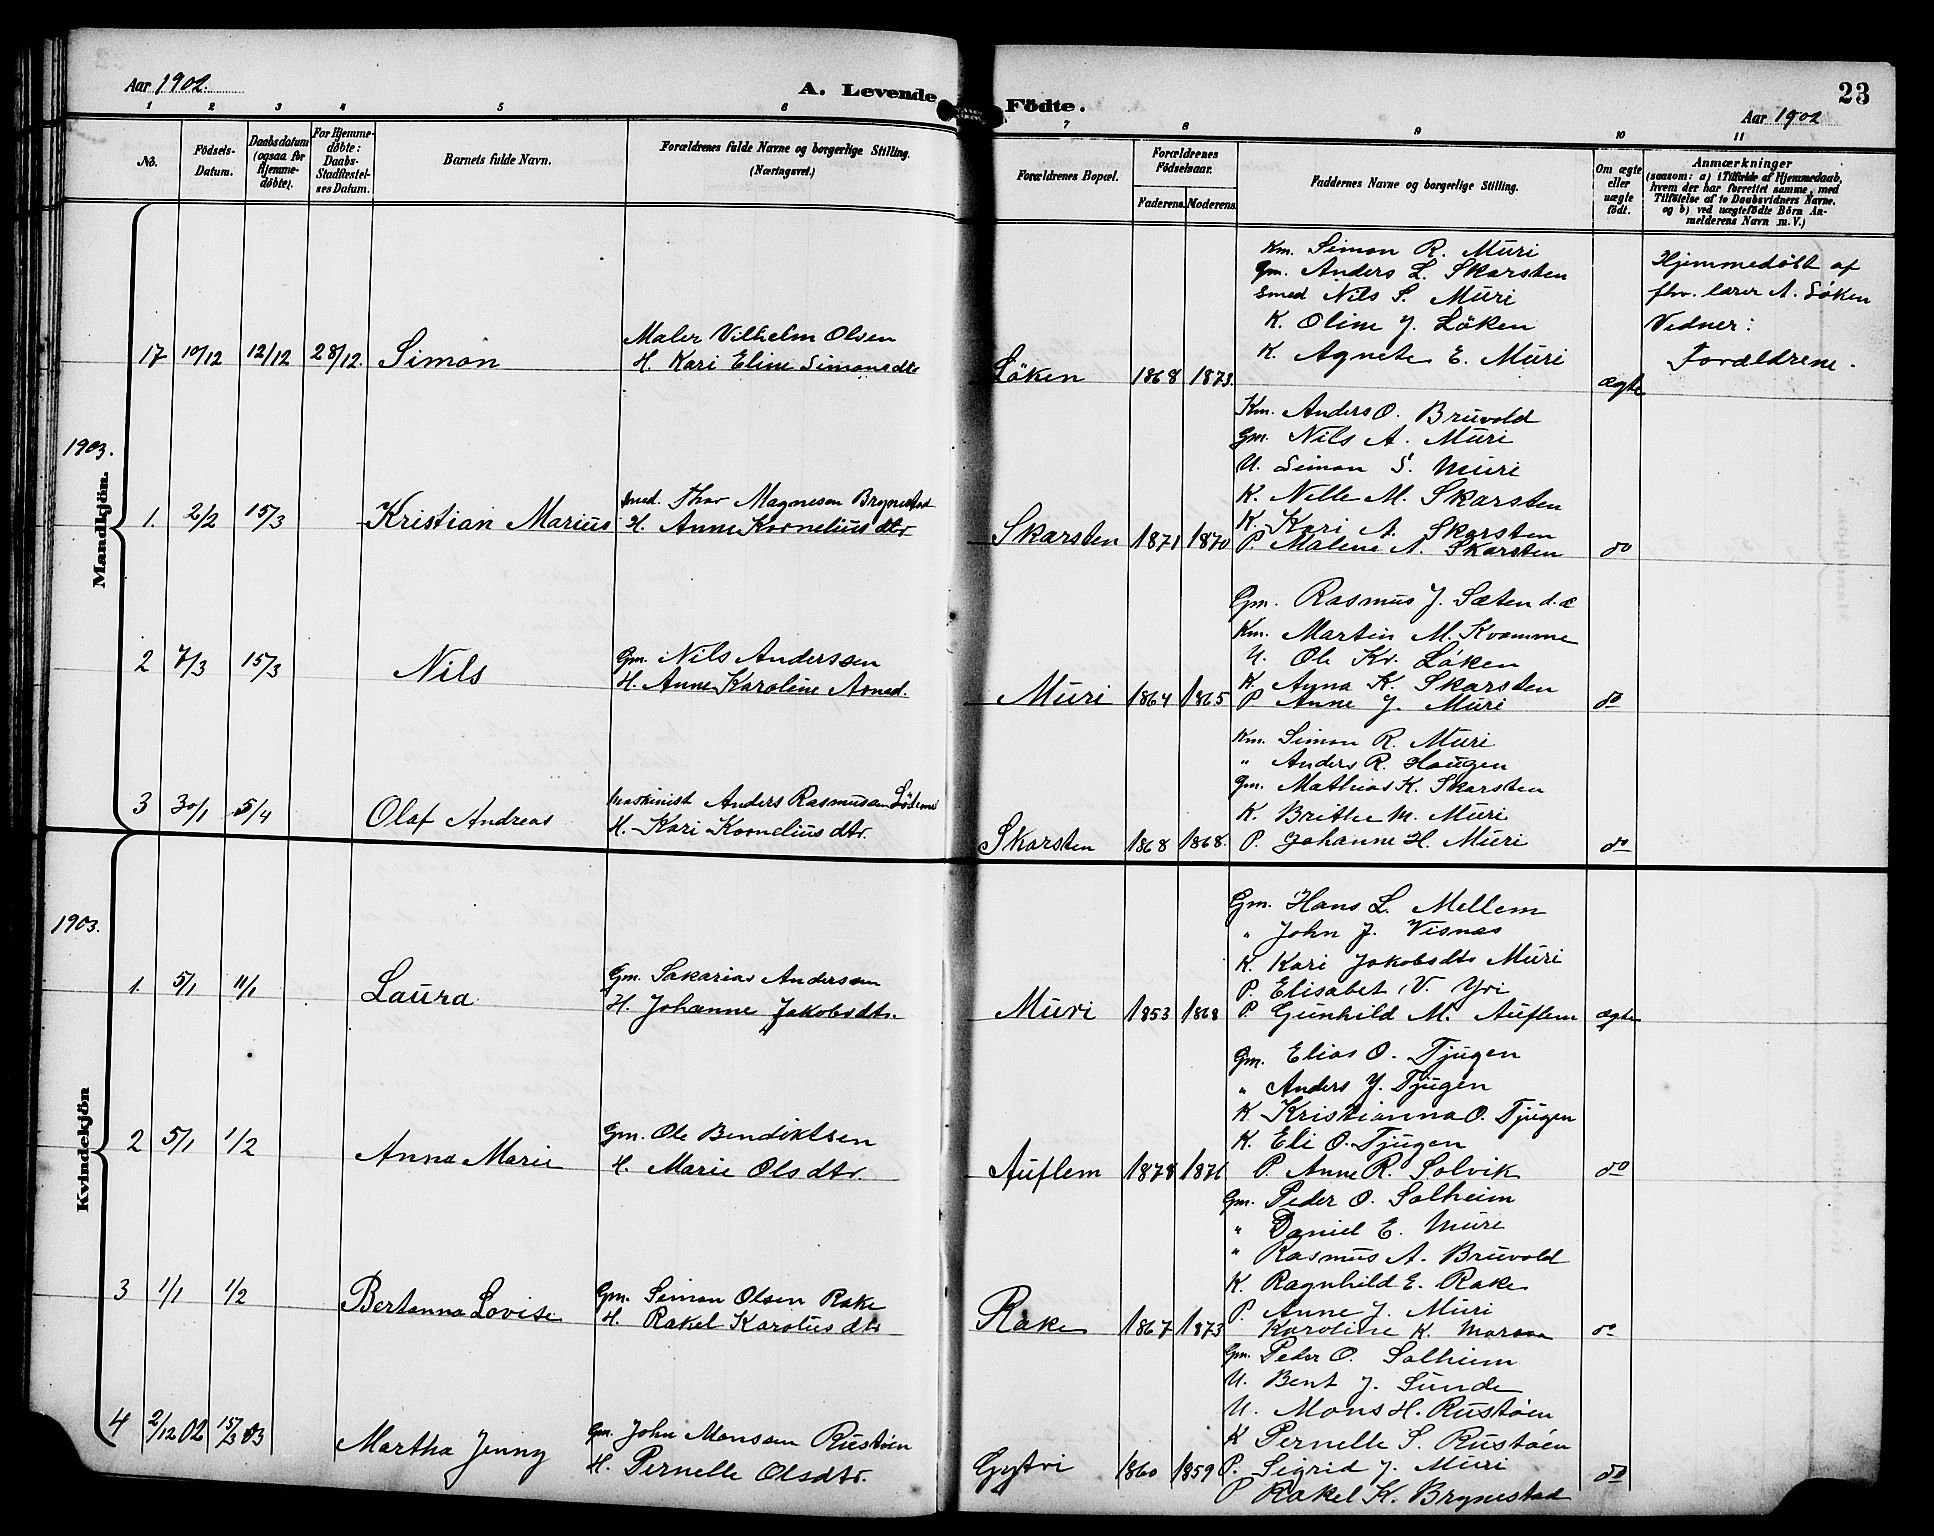 Aar 1902.
A. Levende Födte.
23
Aar 1902
1 2 3 4 5 6 7 8 9 10 11
No.
Födsels-Datum.
Daabsdatum (ogsaa for Hjemmedöbte).
For Hjemmedöbte: Daabs-Stadfæstelses Datum.
Barnets fulde Navn.
Forældrenes fulde Navne og borgerlige Stilling. (Næringsvei.)
Forældrenes Bopæl.
Forældrenes Födselsaar.
Faderens. Moderens.
Faddernes Navne og borgerlige Stilling.
Om ægte eller uægte födt.
Anmærkninger
(saasom: a) i Tilfælde af Hjemmedaab, hvem der har forrettet samme, med Tilföielse af to Daabsvidners Navne. og b) ved uægtefödte Börn Anmelderens Navn m.V.)
Mandkjön.
17 10/12 12/12 28/12. Simon
Maler Vilhelm Olsen
H. Kari Eline Simonsdtr
Löken 1868 1873.
Km. Simon R. Muri
Gm. Anders L. Skarsten
Smed Nils S. Muri
K. Oline J. Löken
K. Agnete E. Muri
ægte
Hjemmedöbt af
fhv. lærer A. Löken
Vidner:
Forældrene.
1903.
1. 2/2 15/3 Kristian Marius
Smed. Thor Magnesen Brynestad
H. Anne Kornelius dtr
Skarsten 1871 1870
Km. Anders O. Bruvold
Gm. Nils A. Muri
U. Simon S. Muri
K. Nille M. Skarsten
K. Kari A. Skarsten
P. Malene A. Skarsten
do
2 7/3 15/3 Nils
Gm. Nils Anderssen
H. Anne Karoline Arned.
Muri 1864 1865
Gm. Rasmus J. Sæten d.æ
Km. Martin M. Kvamme
U. Ole Kr. Löken
K. Agna K. Skarsten
P Anne J. Muri
do
3 30/1 5/4 Olaf Andreas
Maskinist Anders Rasmussen Lödemel
H. Kari Kornelius dtr.
Skarsten 1868 1868.
Km. Simon R. Muri
" Anders R. Haugen
Gm. Mathias K. Skarsten
K. Brithe M. Muri
P. Johanne H. Muri
do
Kvindekjön
1903.
1. 5/1 11/1 Laura
Gm. Sakarias Andersen
H. Johanne Jakobsdtr.
Muri 1853 1868
Gm. Hans L. Mellem
" John J. Visnes
K. Kari Jakobsdtr Muri
P. Elisabet V. Yri
P Gunhild M. Auflem
ægte
2 5/1 1/2 Anna Marie
Gm. Ole Bendiktsen
H. Marie Olsdtr.
Auflem 1878 1876
Gm. Elias O. Tjugen
" Anders J. Tjugen
K Kristianna O. Tjugen
K. Eli O. Tjugen
P. Anne R. Solvik
do
3 1/1 1/2 Bertanna Lovise
Gm. Simon Olsen Rake
H. Rakel Karolus dtr
Rake 1867 1873
Gm. Peder O. Solheim
" Daniel E. Muri
" Rasmus A. Bruvold
K Ragnhild E. Rake
P. Anne J. Muri
Karoline K.
do
4 2/12 02 15/3 03 Martha Jenny
Gm. John Monssen Rustöen
H. Pernelle Olsdtr.
Gytri 1860 1859
Gm. Peder O. Solheim
U. Bent J. Sunde
U. Mons H. Rustöen
K Pernelle S. Rustöen
P. Sigrid J. Muri
P Rakel K. Brynestad
do